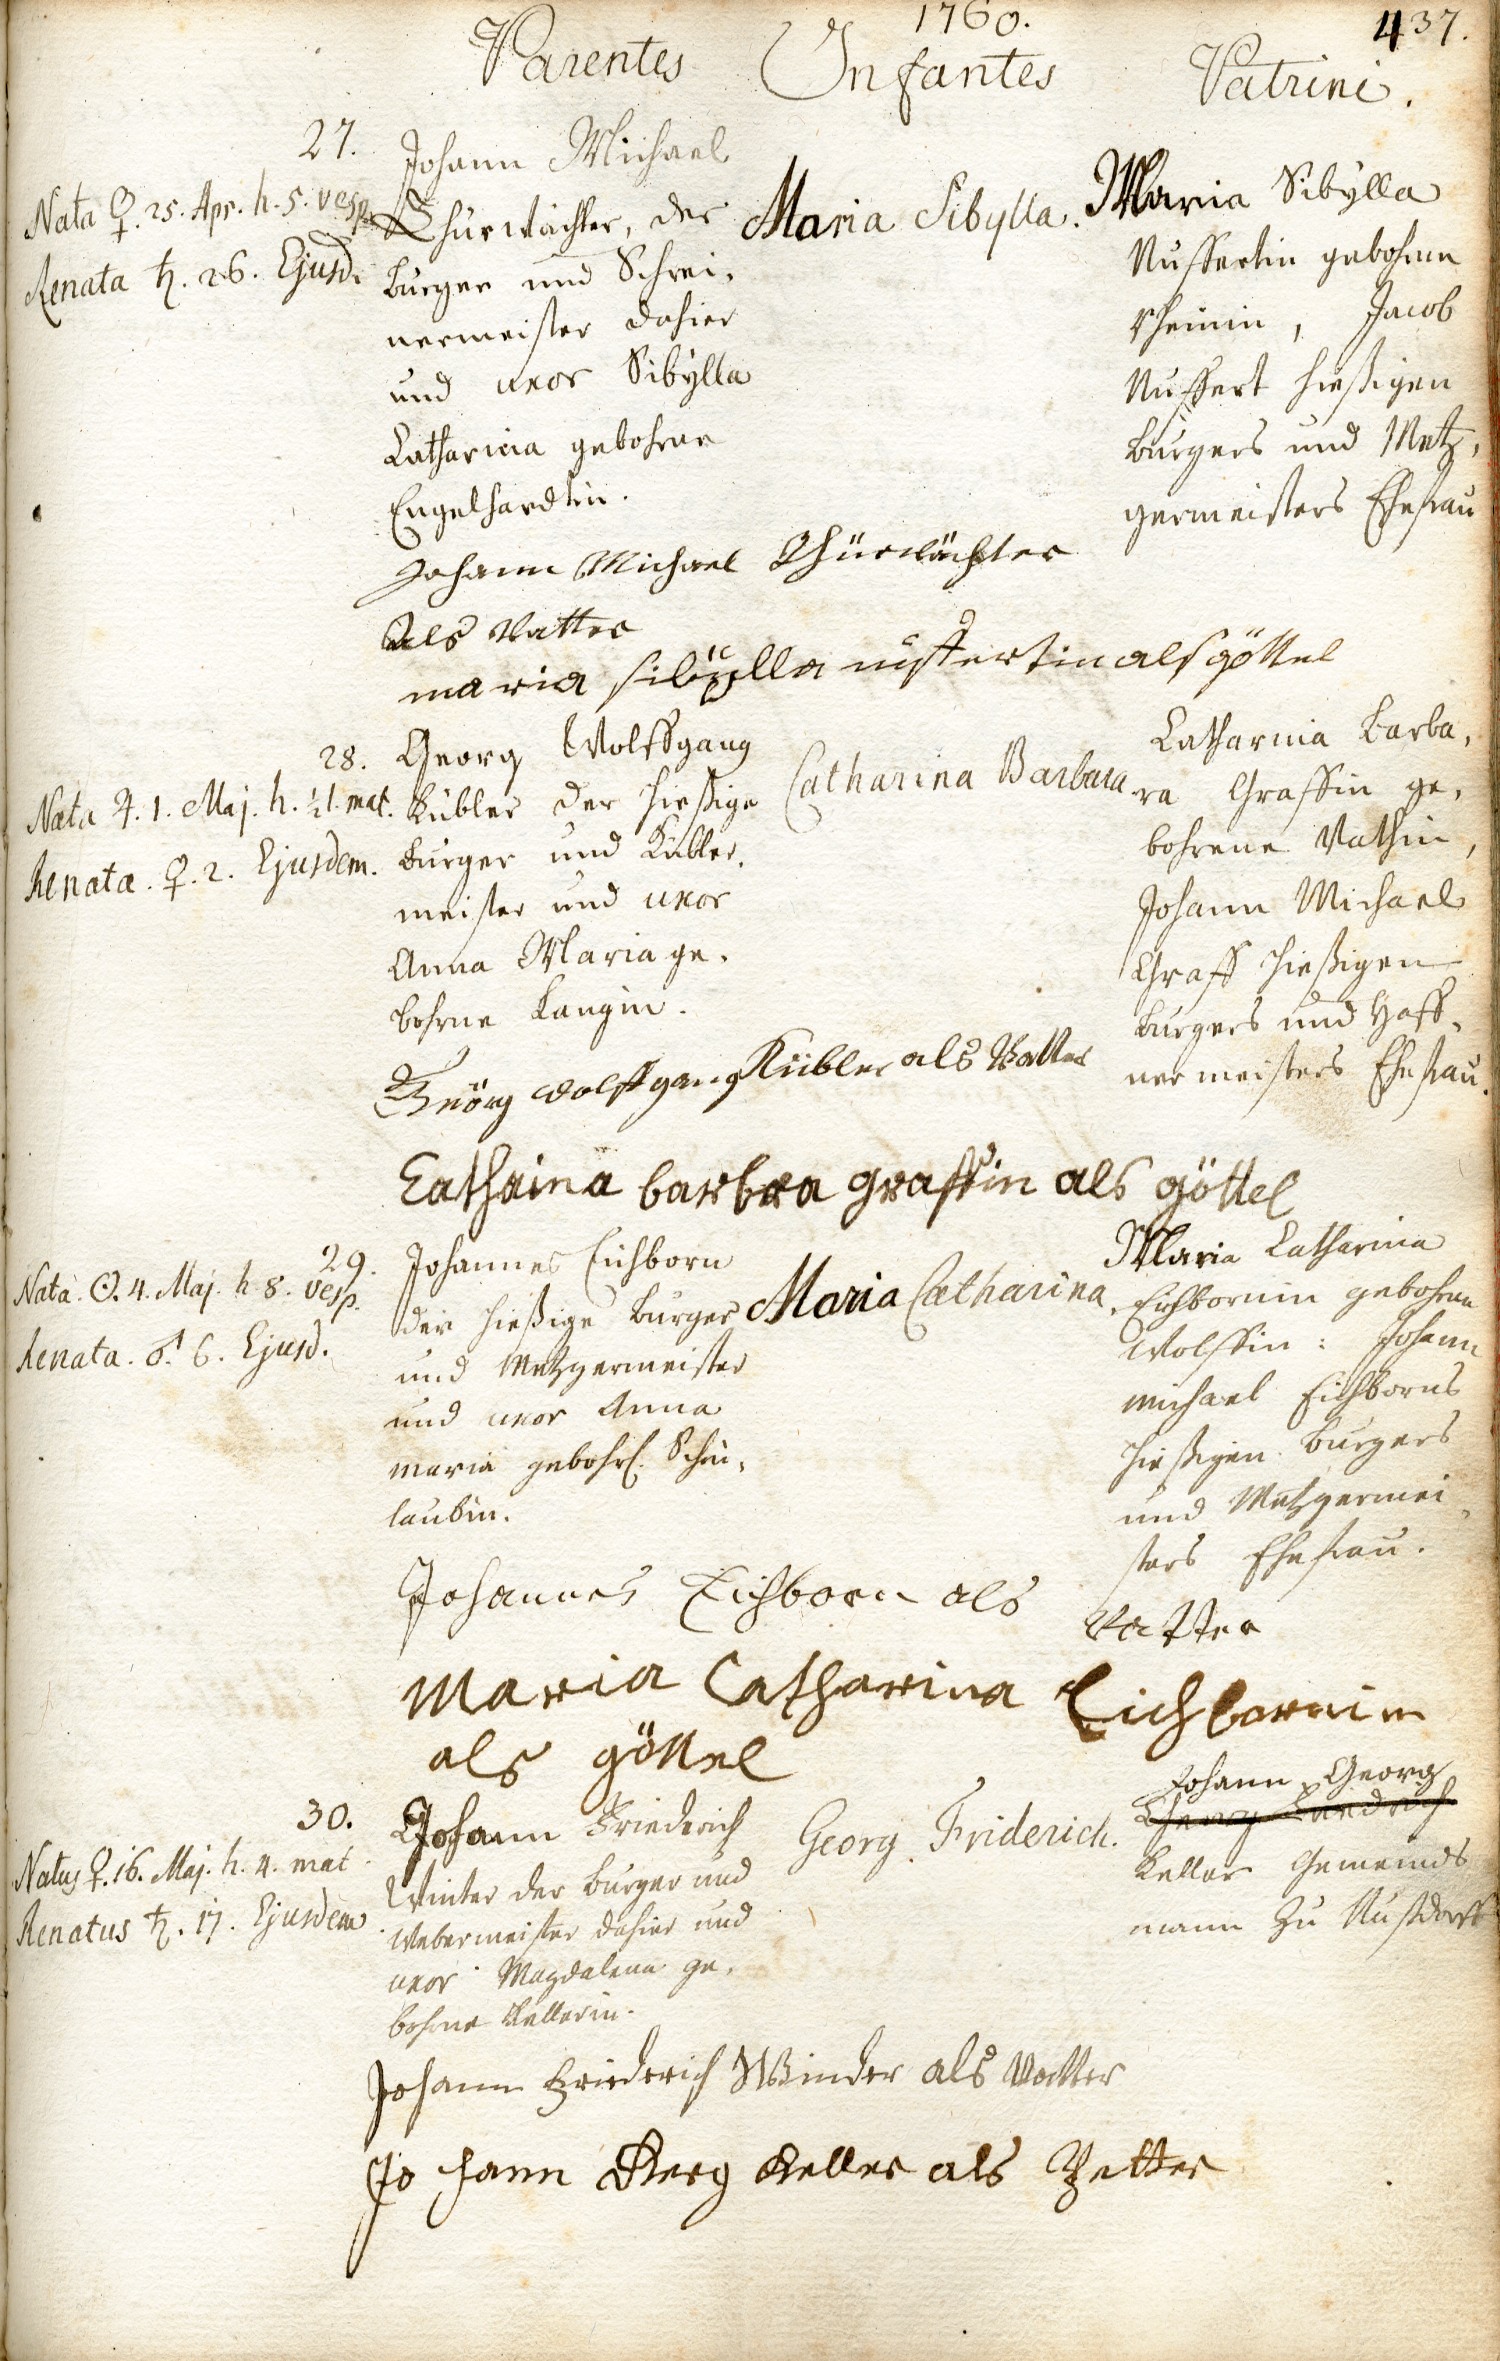 1760.
437.
Parentes
Infantes
Patrini.
27.
Nata ♀. 25. Apr. h. 5. vesp.
Renata ♄. 26. Ejusd.
Johann Michael
Thürwächter, der
burger und Schrei-
nermeister dahier
und uxor Sibÿlla
Catharina gebohrne
Engelhardtin.
Maria Sibylla.
Maria Sibÿlla
Nussertin gebohrne
Rheinin, Jacob
Nussert hießigen
burgers und Metz-
germeisters Ehefrau
Johann Michael Thürwächter
als Vatter
maria sibÿlla nussertin als göttel
28.
Nata ♃. 1. Maj. h. ½1. mat.
Renata. ♀. 2. Ejusdem.
Georg Wolffgang
Kübler der hießige
burger und Kübler-
meister und uxor
Anna Maria ge-
bohrne Langin.
Catharina Barbara.
Catharina Barba-
ra Graffin ge-
bohrene Vathin,
Johann Michael
Graff hießigen
burgers und Haff-
nermeisters Ehefrau.
Geörg wolffgang Kübler als Vatter
Cathrina barbra graffin als göttel
29.
Nata. ☉. 4. Maj. h. 8. vesp.
Renata. ♂. 6. Ejusd.
Johannes Eichborn
der hießige burger
und Metzgermeister
und uxor Anna
maria gebohrl. Schei-
laubin.
Maria Catharina.
Maria Catharina
Eichbornin gebohrne
Wolffin: Johann
michael Eichborns
hießigen burgers
und Metzgermei-
sters Ehefrau.
Johannes Eichborn als Vatter
Maria Catharina Eichbornin
als göttel
30.
Natus ♀. 16. Maj. h. 4. mat.
Renatus ♄. 17. Ejusdem
Johann Friederich
Winter der burger und
Webermeister dahier und
uxor Magdalena ge-
bohrne Kellerin.
Georg Friderich.
Johann Georg
Keller Gemeinds
mann zu Nußdorff
Johann Friederich Winder als Vatter
Johann Georg Keller als Petter